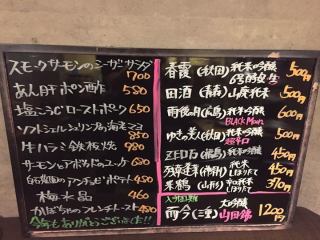 スモークサーモンのシーザーサラダ 700
あん肝ポン酢 580
塩こうじローストポーク 650
ソフトシェルシュリンプ 海老マヨ 850
牛ハラミ鉄板焼 980
サーモンとアボカドのユッケ 680
アンチョビポテト 450
梅水晶 460
かぼちゃのフレンチトースト 450
今年もありがとうございました!!
春霞(秋田) 純米吟醸 6号酵母 500円
田酒(青森) 山廃純米 500円
雨後の月(広島) 純米吟醸 BLACK Moon 600円
ゆきの美人(秋田) 純米吟醸 超辛口 500円
ZERO(福島) 純米 450円
(福島) 純米 しぼりたて 450円
米鶴(山形) 純米 しぼりたて 390円
入手困難
而今(三重) 大吟醸 山田錦 1200円